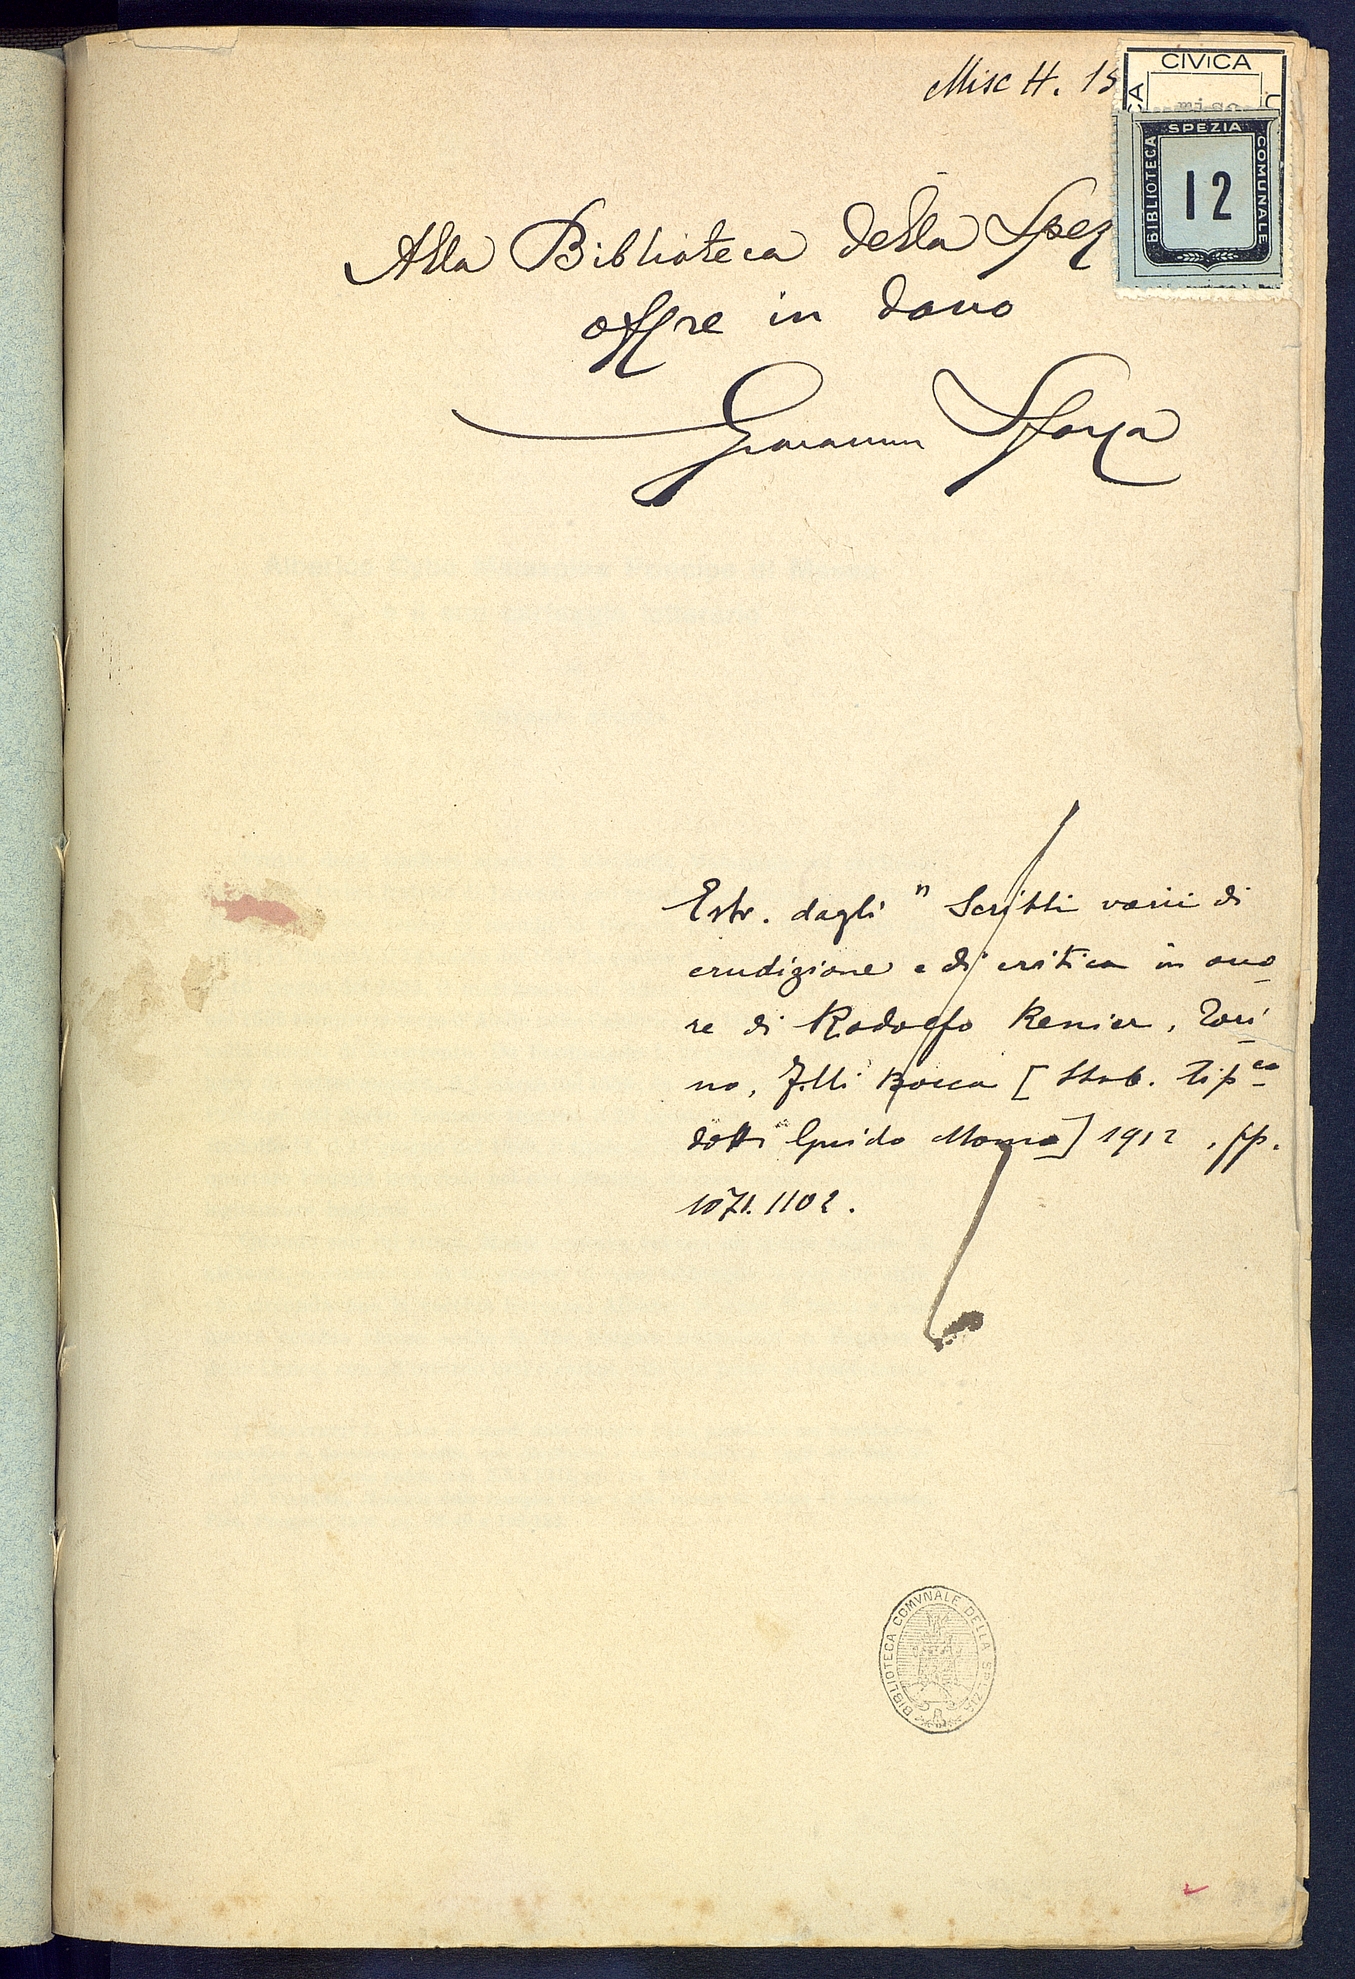 Misc H. 15
CIVICA
misc
BIBLIOTECA SPEZIA COMUNALE
12
Alla Biblioteca della Spez
offre in dono
Giovanni Sforza
Estr. dagli " Scritti varii di
erudizione e di critica in ono
re di Rodolfo Renier, Tori
no, F.lli Bocca [Stab. tip.co
dott. Guido Momo] 1912, pp.
1071.1102.
BIBLIOTECA COMVNALE DELLA SPEZIA